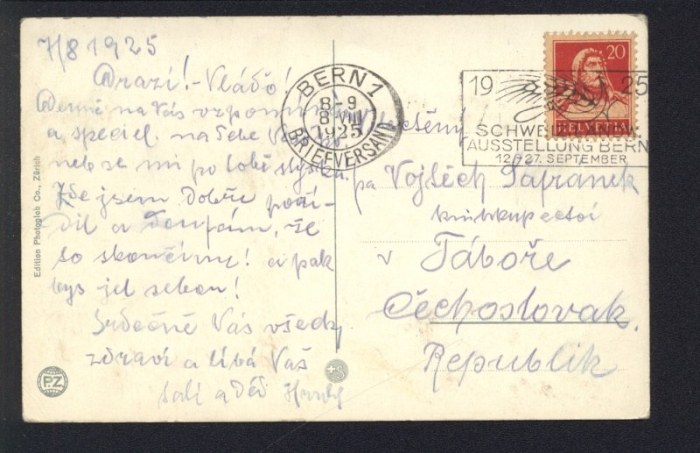 7/8 1925
Drazí! - Vláďo!
Denně na Vás vzpomín
a speciel. na Tebe
neb se mi po tobě stýská.
Zde jsem dobře
a doufám, že
to skončíme! a pak
bys jel sebou!
Srdečně Vás všecky
zdraví a líbá Váš
a děd
Edition Photoglob Co., Zürich
PZ
BERN 1
8-9
8 VIII
1925
BRIEFVERSAND
1925
SCHWEIZ.
AUSSTELLUNG BERN
12.-27. SEPTEMBER
20
HELVETIA
Vojtěch Papranek
knihkupectví
v Táboře
Čechoslovak.
Republik